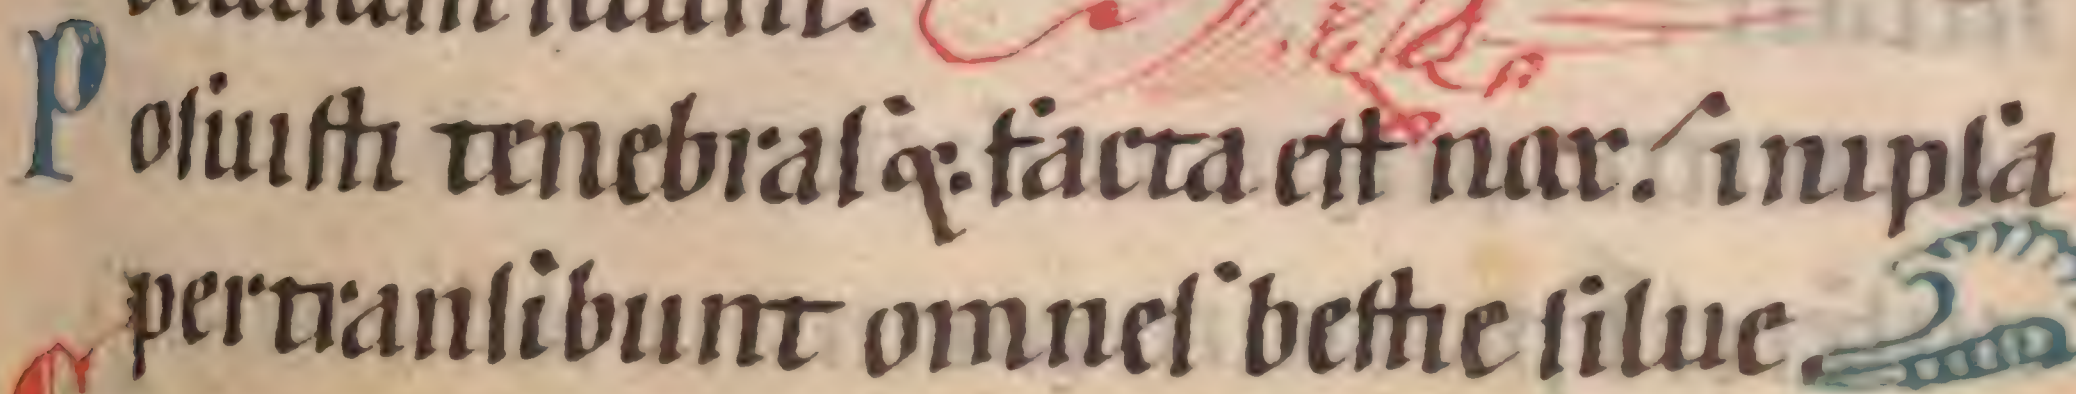 Posuisti tenebras q; facta est nox: in ipsa
pertransibunt omnes bestie silue.